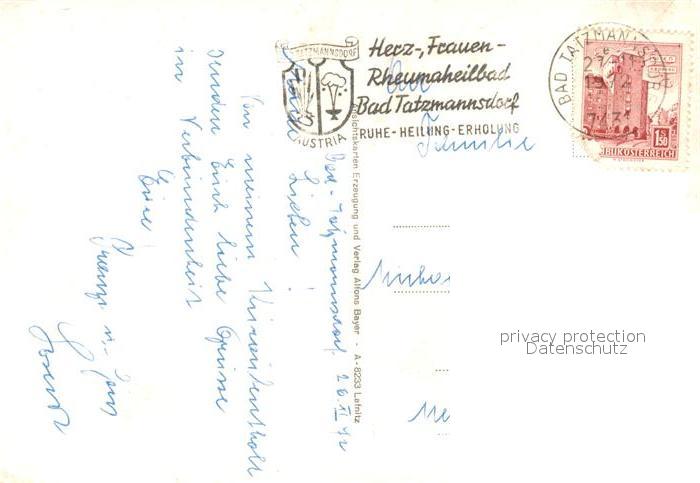 TATZMANNSDORF
AUSTRIA
Herz-, Frauen-
Rheumaheilbad
Bad Tatzmannsdorf
RUHE-HEILUNG-ERHOLUNG
BAD TATZMANNSDORF
1.50
REPUBLIK ÖSTERREICH
Familie
Micha
Me
privacy protection
Datenschutz
Ansichtskarten Erzeugung und Verlag Alfons Bayer - A-8233 Lafnitz
Bad-Tatzmannsdorf, 26.II 72
Lieben!
Von meinem Kuraufenthalt
senden Euch liebe Grüsse
in Verbundenheit
Eure
Franz u.